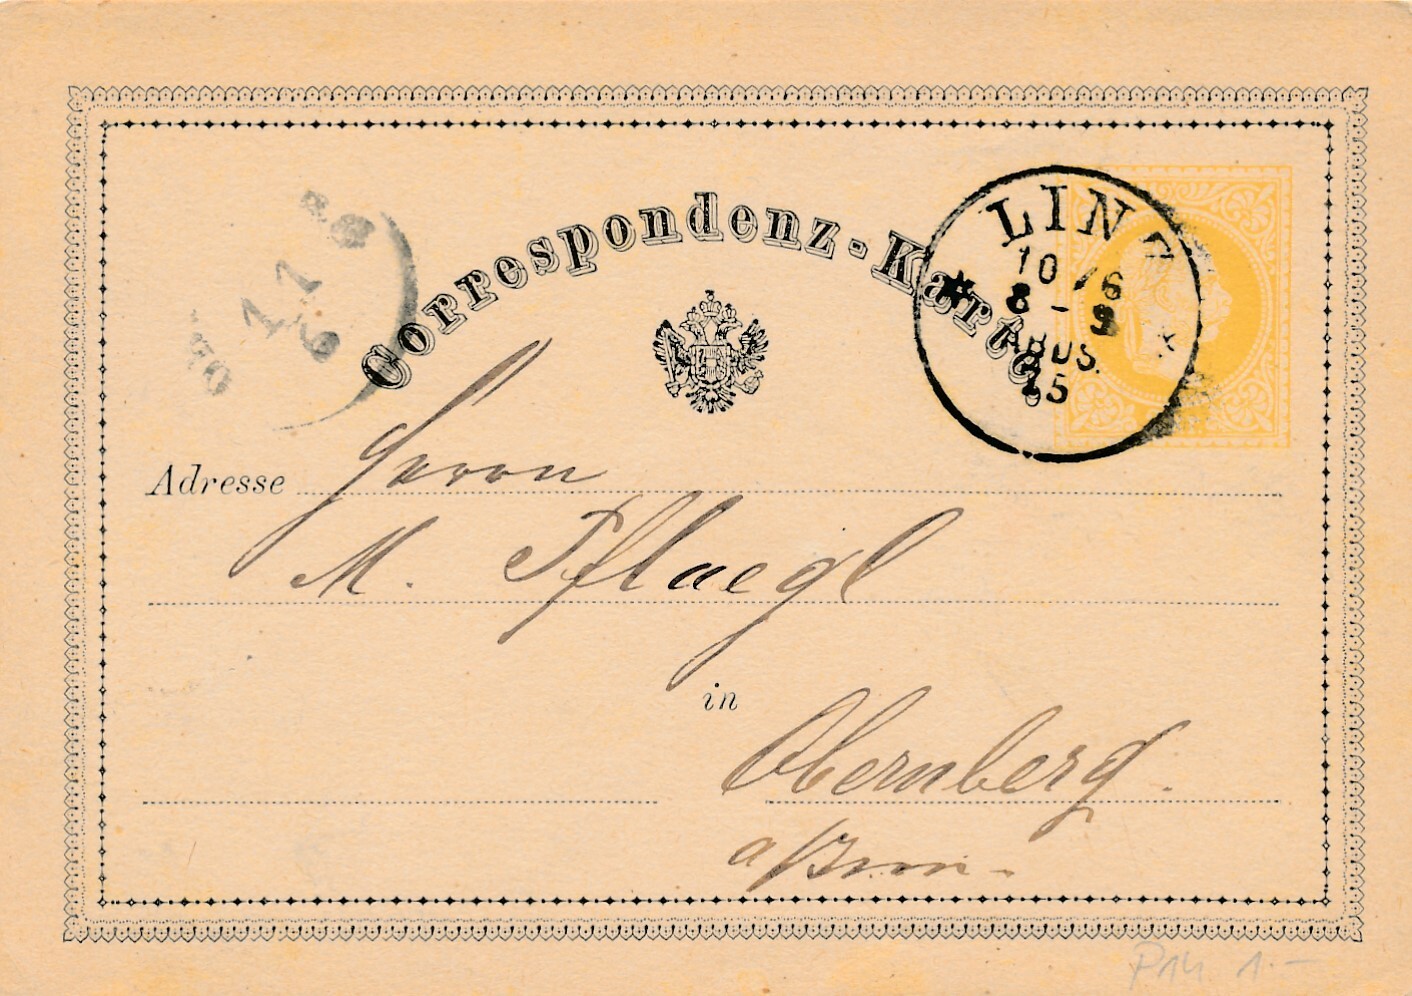 Correspondenz-Karte
LINZ
10/6
8-9
ABDS.
75
11
6
Adresse Herrn
M. Pflaegl
in Obernberg.
a/Inn.
P14 1.-